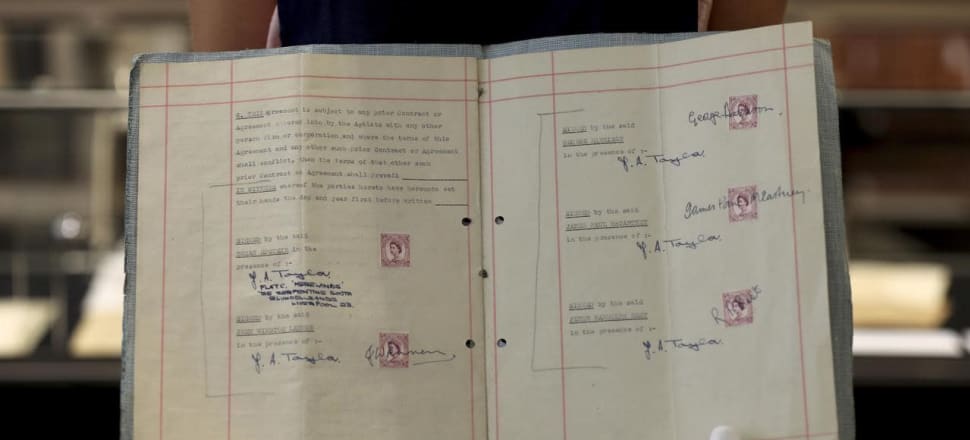 8. THIS Agreement is subject to any prior Contract or
Agreement entered into by the Artists with any other
person firm or corporation and where the terms of this
Agreement and any other such prior Contract or Agreement
shall conflict, then the terms of that other such
prior Contract or Agreement shall prevail
IN WITNESS whereof the parties hereto have hereunto set
their hands the day and year first before written
SIGNED by the said
BRIAN EPSTEIN in the
presence of :-
J. A. Taylor
LIVERPOOL 23.
SIGNED by the said
JOHN WINSTON LENNON
in the presence of :-
J. A. Taylor. JWLennon
SIGNED by the said
GEORGE HARRISON
in the presence of :-
George Harrison.
J. A. Taylor.
SIGNED by the said
JAMES PAUL MCCARTNEY
in the presence of :-
James Paul McCartney.
J. A. Taylor.
SIGNED by the said
PETER RANDOLPH BEST
in the presence of :-
J. A. Taylor.